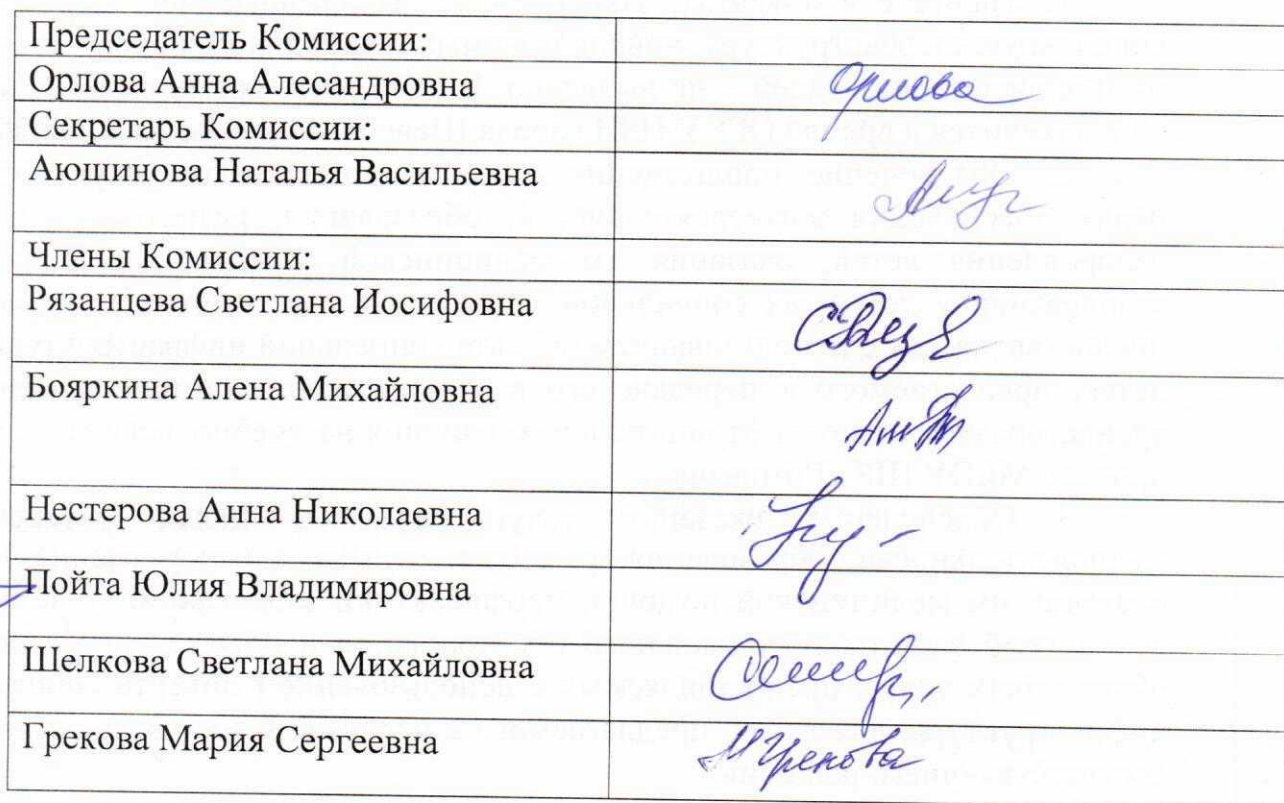 Председатель Комиссии:
Орлова Анна Алесандровна Орлова
Секретарь Комиссии:
Аюшинова Наталья Васильевна
Члены Комиссии:
Рязанцева Светлана Иосифовна
Бояркина Алена Михайловна
Нестерова Анна Николаевна
Пойта Юлия Владимировна
Шелкова Светлана Михайловна
Грекова Мария Сергеевна МГрекова